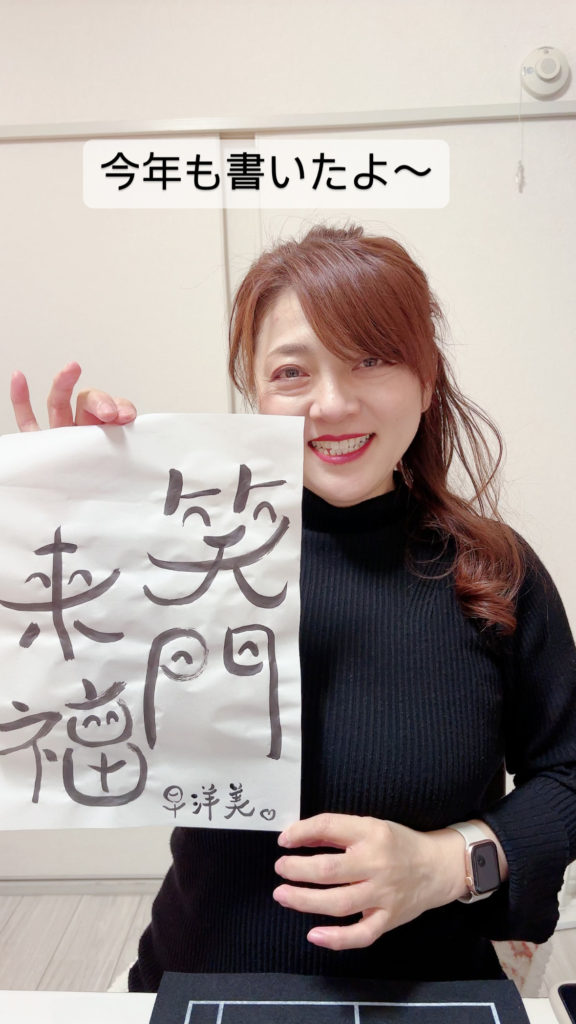 今年も書いたよ〜
笑門
来福
早洋美